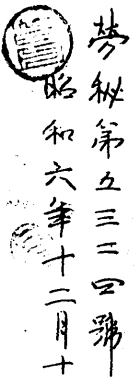 勞秘第五三二四號
昭和六年十二月十